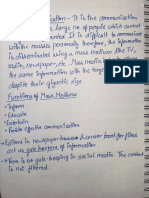 communication - It is the communication
large no. of people which cannot
It is difficult to communicate
with the masses personally, therefore, the information
is disseminated using a mass medium like TV,
radio, newspaper, etc. Mass media which share
the same information with the target
despite their gigantic size
Functions of Mass Mediums
Inform
Educate
Entertain
Enables effective communication
Editors in newspaper houses A censor board for films
act as gate keepers of information
There is no gate-keeping in social media. The content
is not filtered.